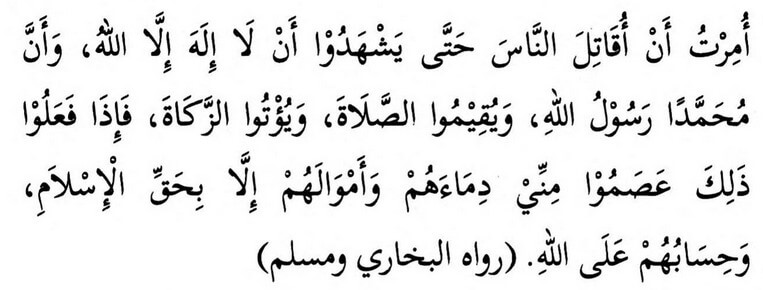 أُمِرْتُ أَنْ أُقَاتِلَ النَّاسَ حَتَّى يَشْهَدُوْا أَنْ لَا إِلَهَ إِلَّا اللهُ، وَأَنَّ
مُحَمَّدًا رَسُوْلُ اللهِ، وَيُقِيْمُوا الصَّلَاةَ، وَيُؤْتُوا الزَّكَاةَ، فَإِذَا فَعَلُوْا
ذَلِكَ عَصَمُوْا مِنِّيْ دِمَاءَهُمْ وَأَمْوَالَهُمْ إِلَّا بِحَقِّ الْإِسْلاَمِ،
وَحِسَابُهُمْ عَلَى اللهِ. (رواه البخاري ومسلم)